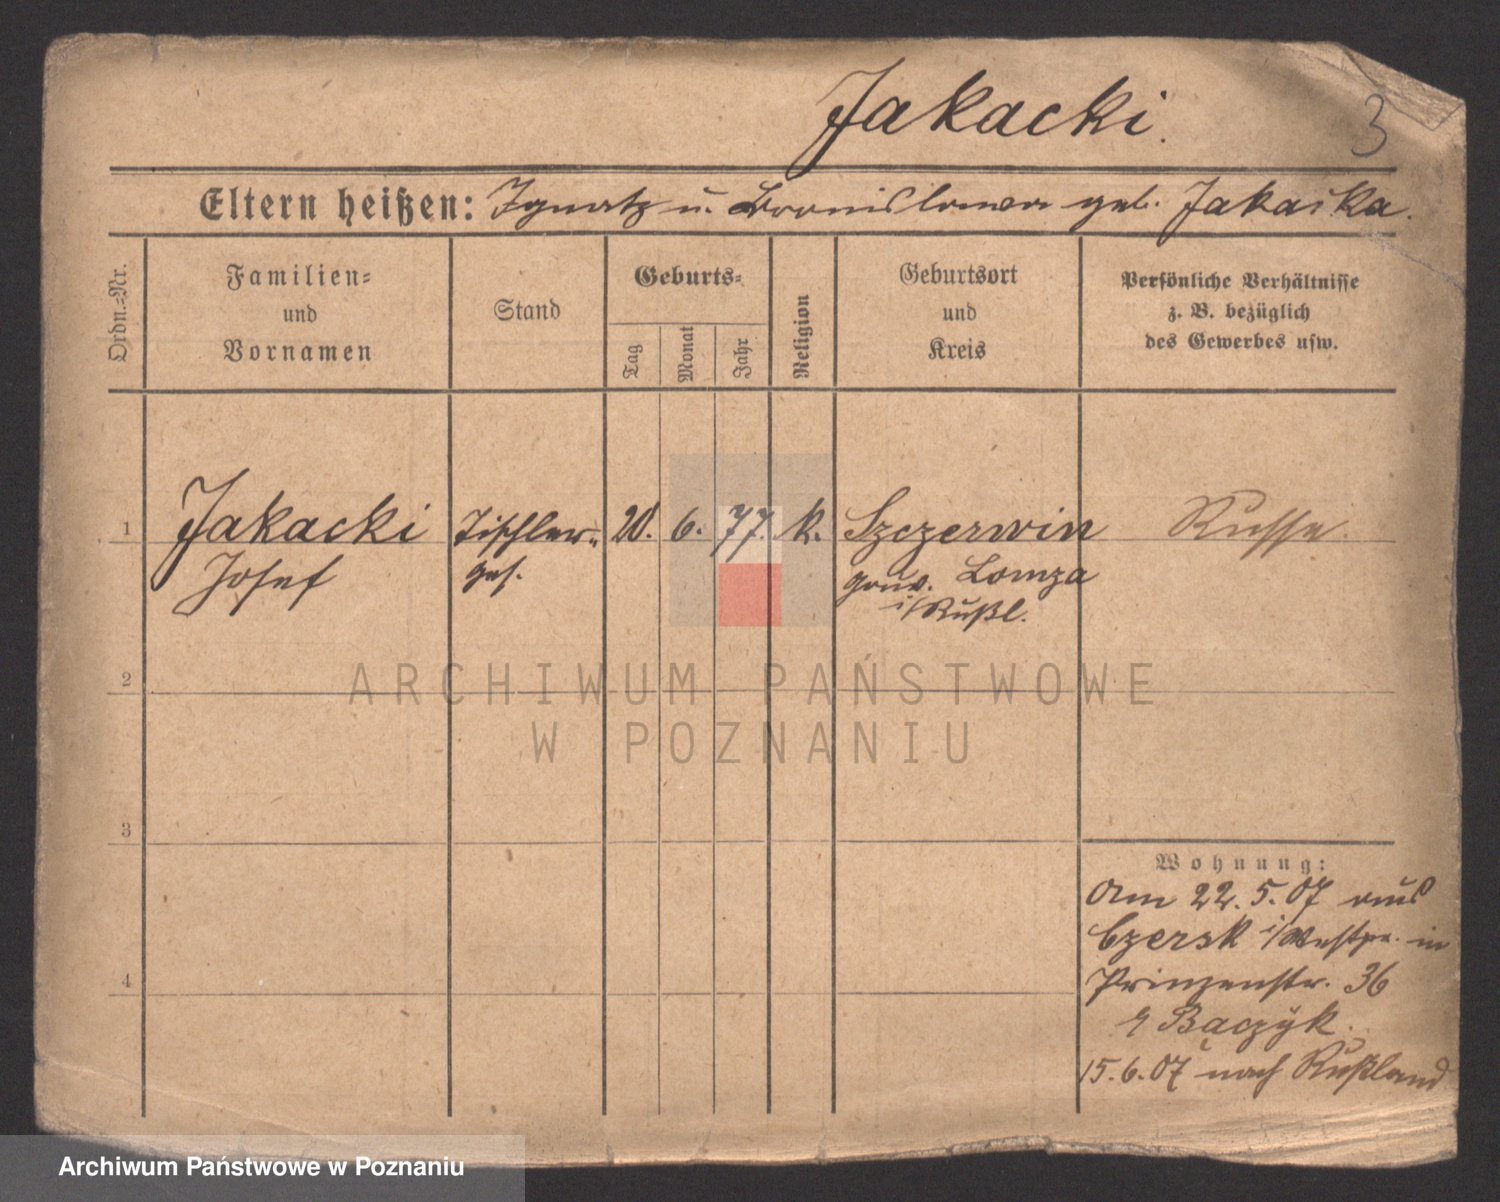 Jakacki.
3
Eltern heißen: Ignatz u. Bronislawa geb. Jakacka.
Ordn.=Nr.
Familien=
und
Vornamen
Stand
Geburts=
Tag
Monat
Jahr
Religion
Geburtsort
und
Kreis
Persönliche Verhältnisse
z. B. bezüglich
des Gewerbes usw.
1 Jakacki Tischler= 20. 6. 77. k. Szczerwin Russe.
Josef ges. Gouv. Lomza
i/Rußl.
2
3
Wohnung:
Am 22.5.07 aus
Czersk i/Westpr. in
Prinzenstr. 36
Bączyk.
15.6.07 nach Rußland
4
ARCHIWUM PAŃSTWOWE
W POZNANIU
Archiwum Państwowe w Poznaniu